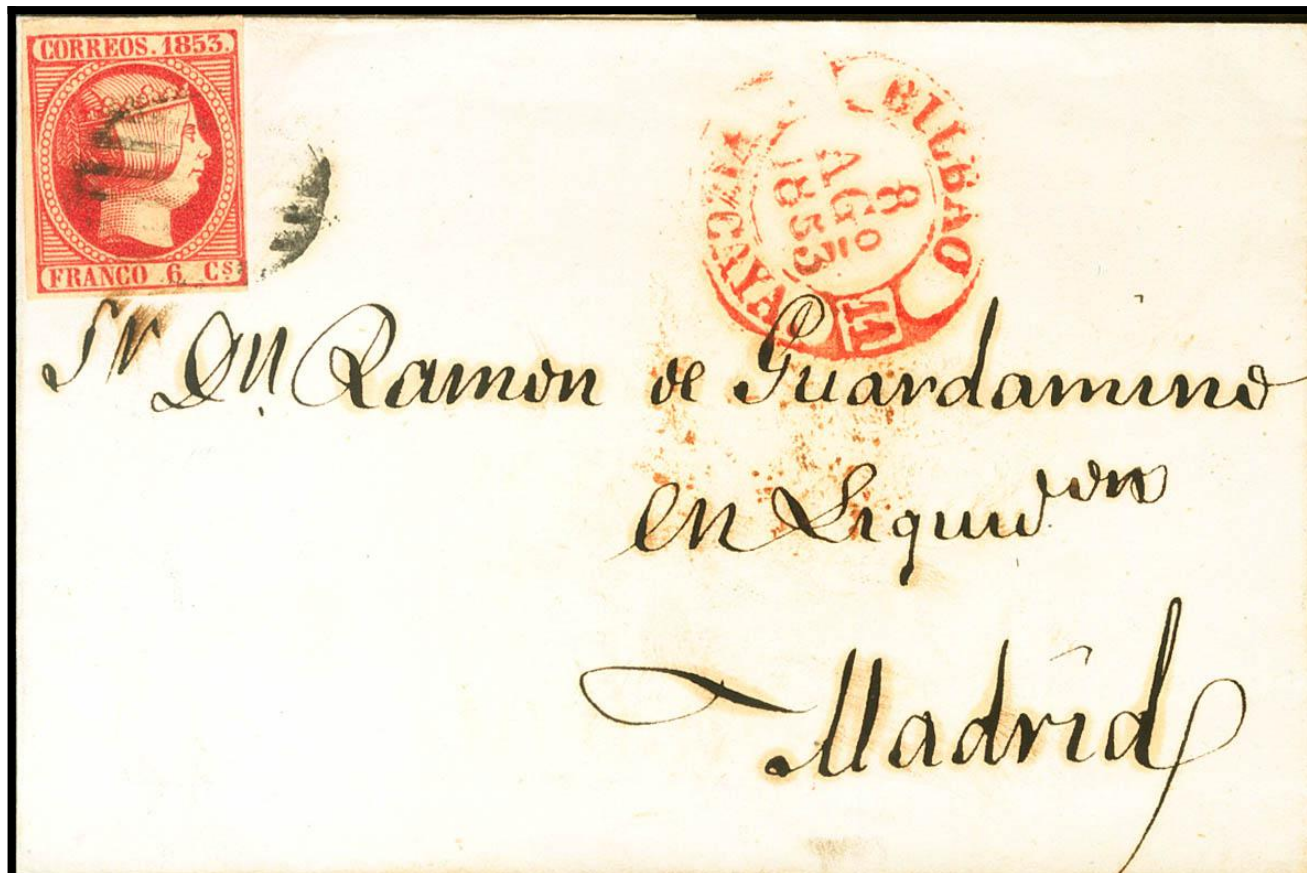 CORREOS. 1853.
FRANCO 6 Cs
BILBAO
8
AGº
1853
VIZCAYA
11
Sr Dn Ramon de Guardamino
en Liquidon
Madrid